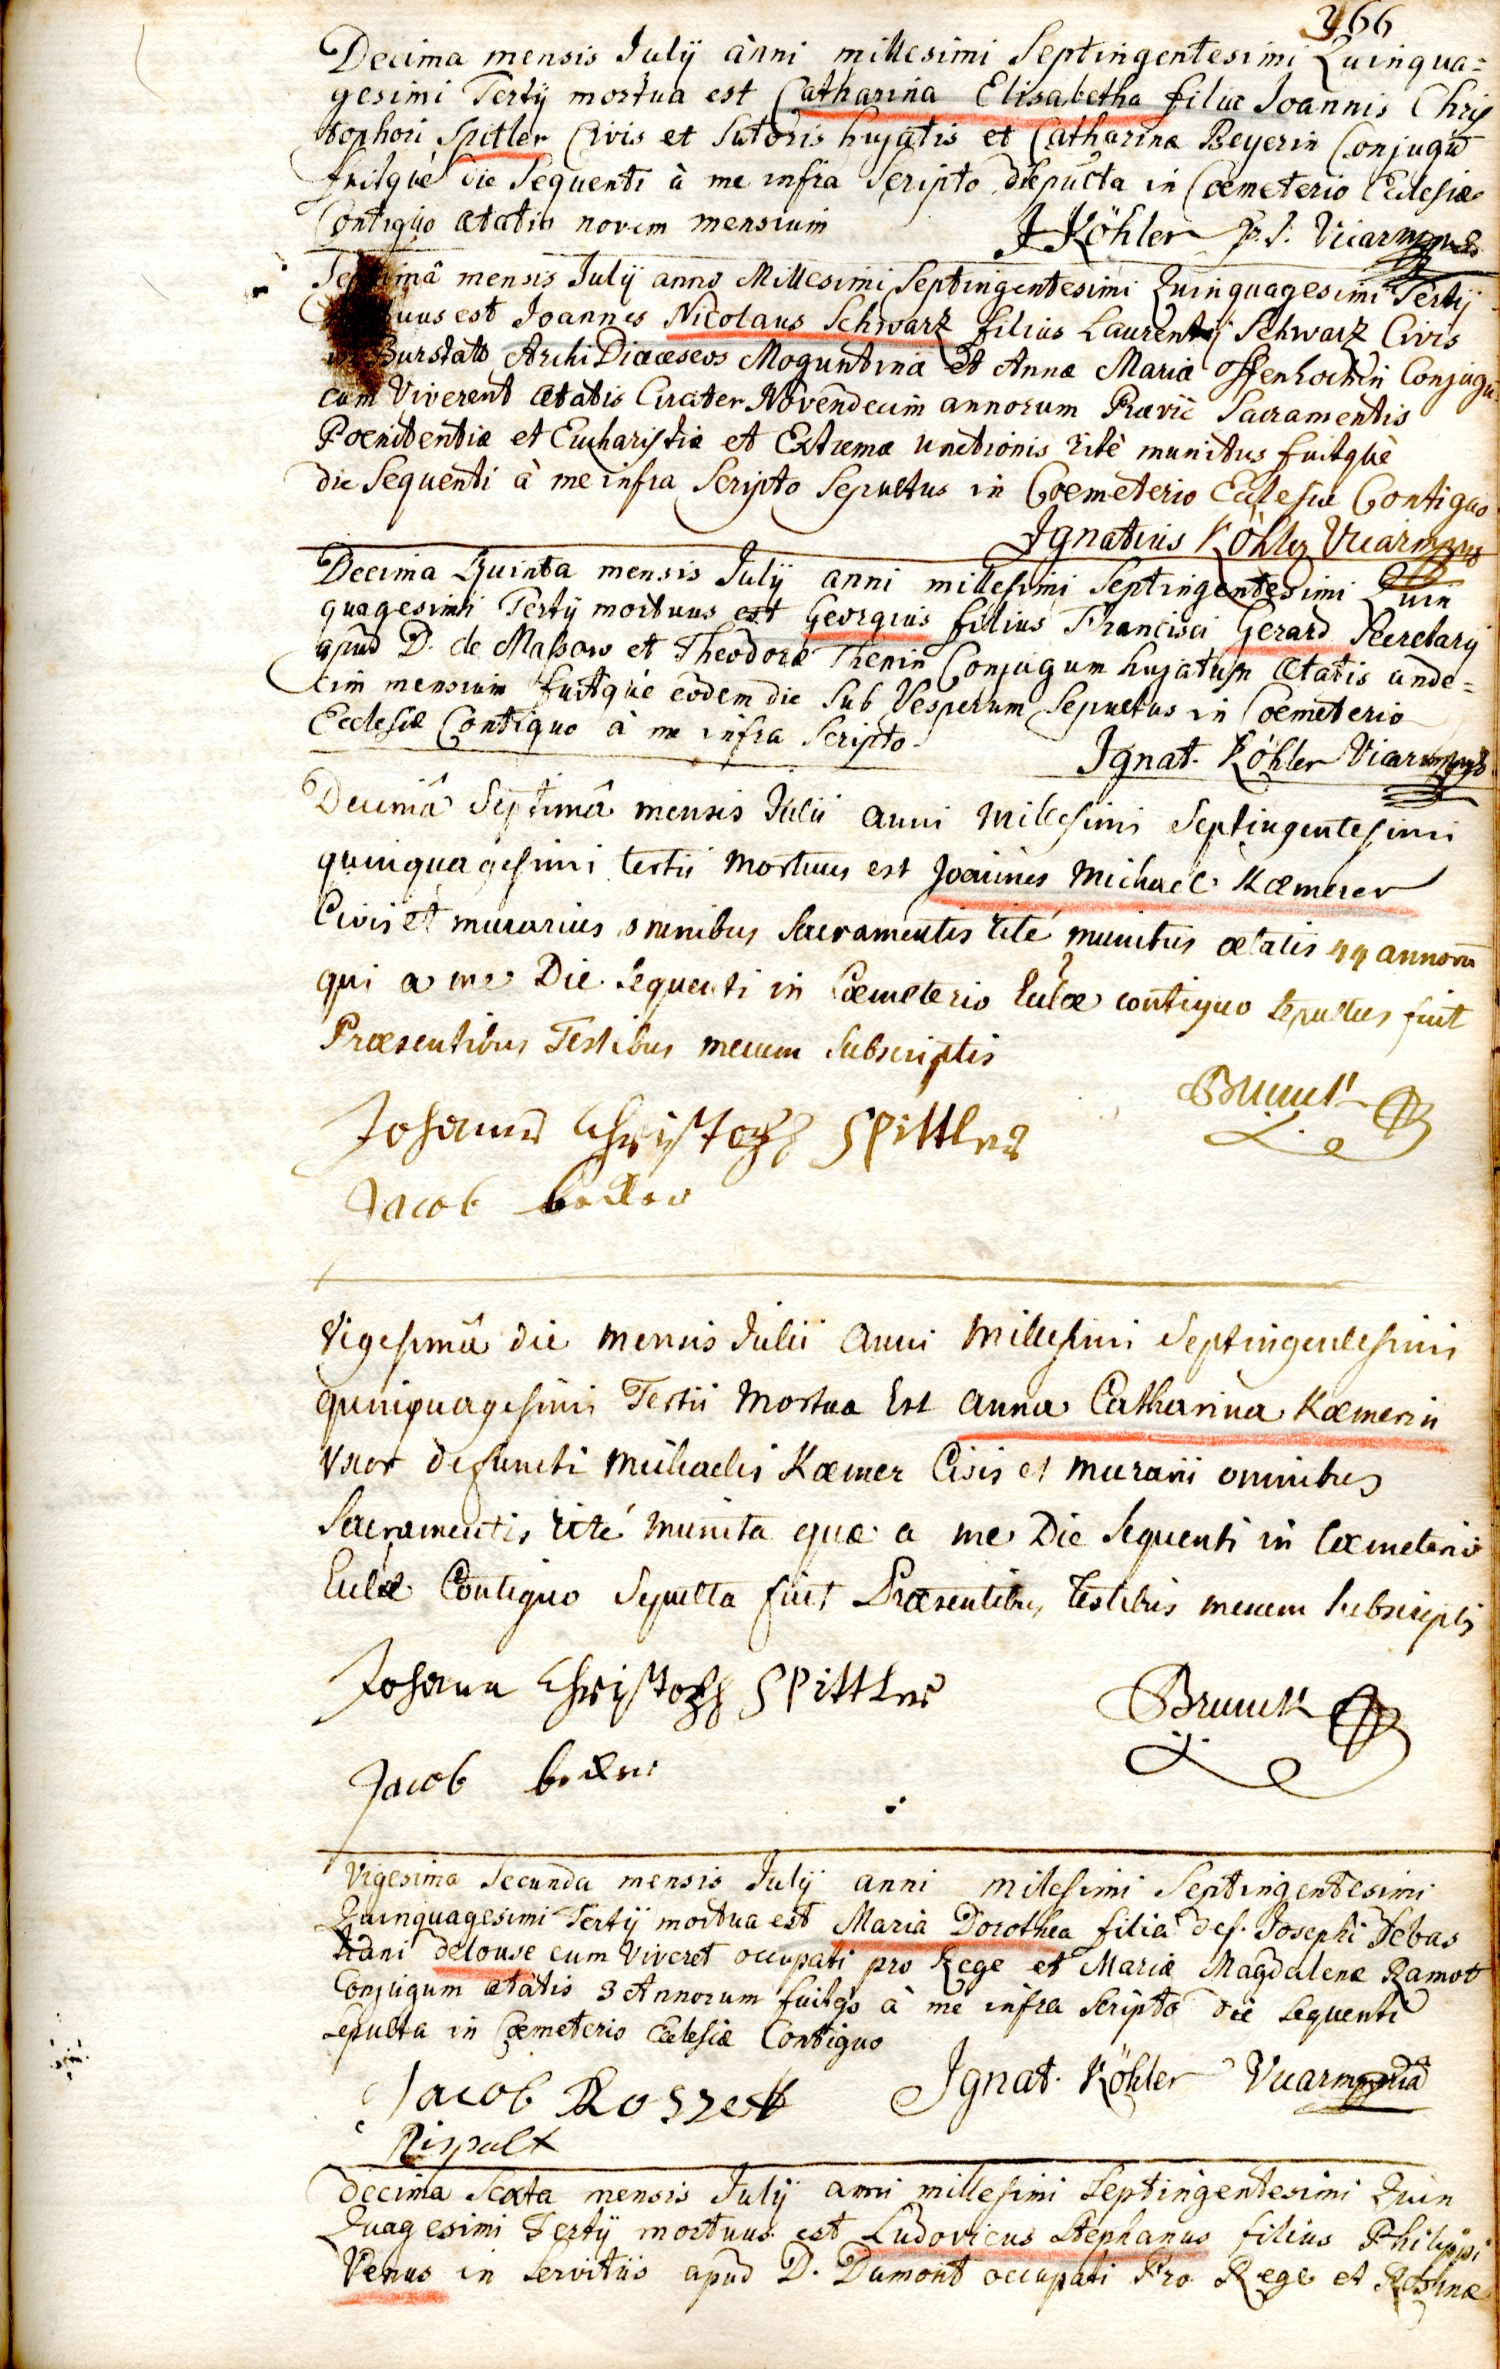 366
Decima mensis Julÿ anni millesimi Septingentesimi Quinqua=
gesimi Tertÿ mortua est Catharina Elisabetha filia Joannis Chris
tophori Spitler Civis et Sutoris hujatis et Catharinæ Beyerin Conjugū
fuitquè die Sequenti à me infra Scripto in Coemeterio Ecclesiæ
Contiguo ætatis novem mensium J Köhler Vicar
mensis Julÿ anno Millesimi Septingentesimi Quinquagesimi Tertÿ
est Joannes Nicolaus Schwarz filius Laurentÿ Schwarz Civis
Burstatt Archi Diæceseos Moguntina et Annæ Maria Offenlochin Conjugū
cum Viverent ætatis Circiter Novendecim annorum Præviè Sacramentis
Poenitentiæ et Eucharistiæ et Extremæ unctionis ritè munitus fuitquè
die Sequenti à me infra Scripto Sepultus in Coemeterio Ecclesiæ Contiguo
Ignatius Köhler Vicar
Decima Quinta mensis Julÿ anni millesimi Septingentesimi Quin
quagesimi Tertÿ mortuus est Georgius filius Francisci Gerard Secretarÿ
apud D. de Malsow et Theodoræ Thenin Conjugum hujatum ætatis unde=
cim mensium fuitquè eodem die Sub Vesperum Sepultus in Coemeterio
Ecclesiæ Contiguo à me infra Scripto. Ignat. Köhler Vicar
Decimâ Septimâ mensis Julii anni Millesimi Septingentesimi
quinquagesimi tertii Mortuus est Joannes Michael Kæmerer
Civis et murarius omnibus Sacramentis rité munitus ætatis 44 annorū
qui a me Die sequenti in Cæmeterio Eclæ contiguo sepultus fuit
Præsentibus Testibus mecum Subscriptis
Johann Christoph Spittler Brunck
Jacob
Vigesimâ die mensis Julii anni Millesimi Septingentesimi
quinquagesimi Tertii Mortua Est Anna Catharina Kæmerin
Uxor defuncti Michaelis Kæmer Civis et murarii omnibus
Sacramentis rité munita quæ a me Die sequenti in Cæmeterio
Eclæ Contiguo Sepulta fuit Præsentibus Testibus mecum subscriptis
Johann Christoph Spittler Brunck
Jacob
Vigesima Secunda mensis Julÿ anni milesimi Septingentesimi
Quinquagesimi Tertÿ mortua est Maria Dorothea filia def. Josephi Sebas
tiani delouse cum Viveret occupati pro Rege et Mariæ Magdalenæ Ramot
Conjugum ætatis 3 Annorum fuitqs à me infra Scripto die sequenti
Sepulta in Coemeterio Ecclesiæ Contiguo
Jacob Ignat. Köhler Vicar
Rispalt
Decima Sexta mensis Julÿ anni millesimi Septingentesimi Quin
Quagesimi Tertÿ mortuus est Ludovicus Stephanus filius Philippi
Venus in servitiis apud D. Dumont occupati Pro Rege et Rosinæ